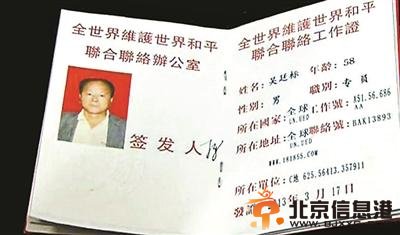 全世界維護世界和平
聯合聯絡辦公室
签发人
全世界維護世界和平
聯合聯絡工作證
姓名 吴廷标 年龄：58
性别：男 職别：专員
所在國家：全球工作號：A51.56.686
UN.UED AA
所在地址：全球聯絡號：BAK13893
UN.UED
所在單位：C地 625.56413.357911
13年 3月 17日
北京信息港